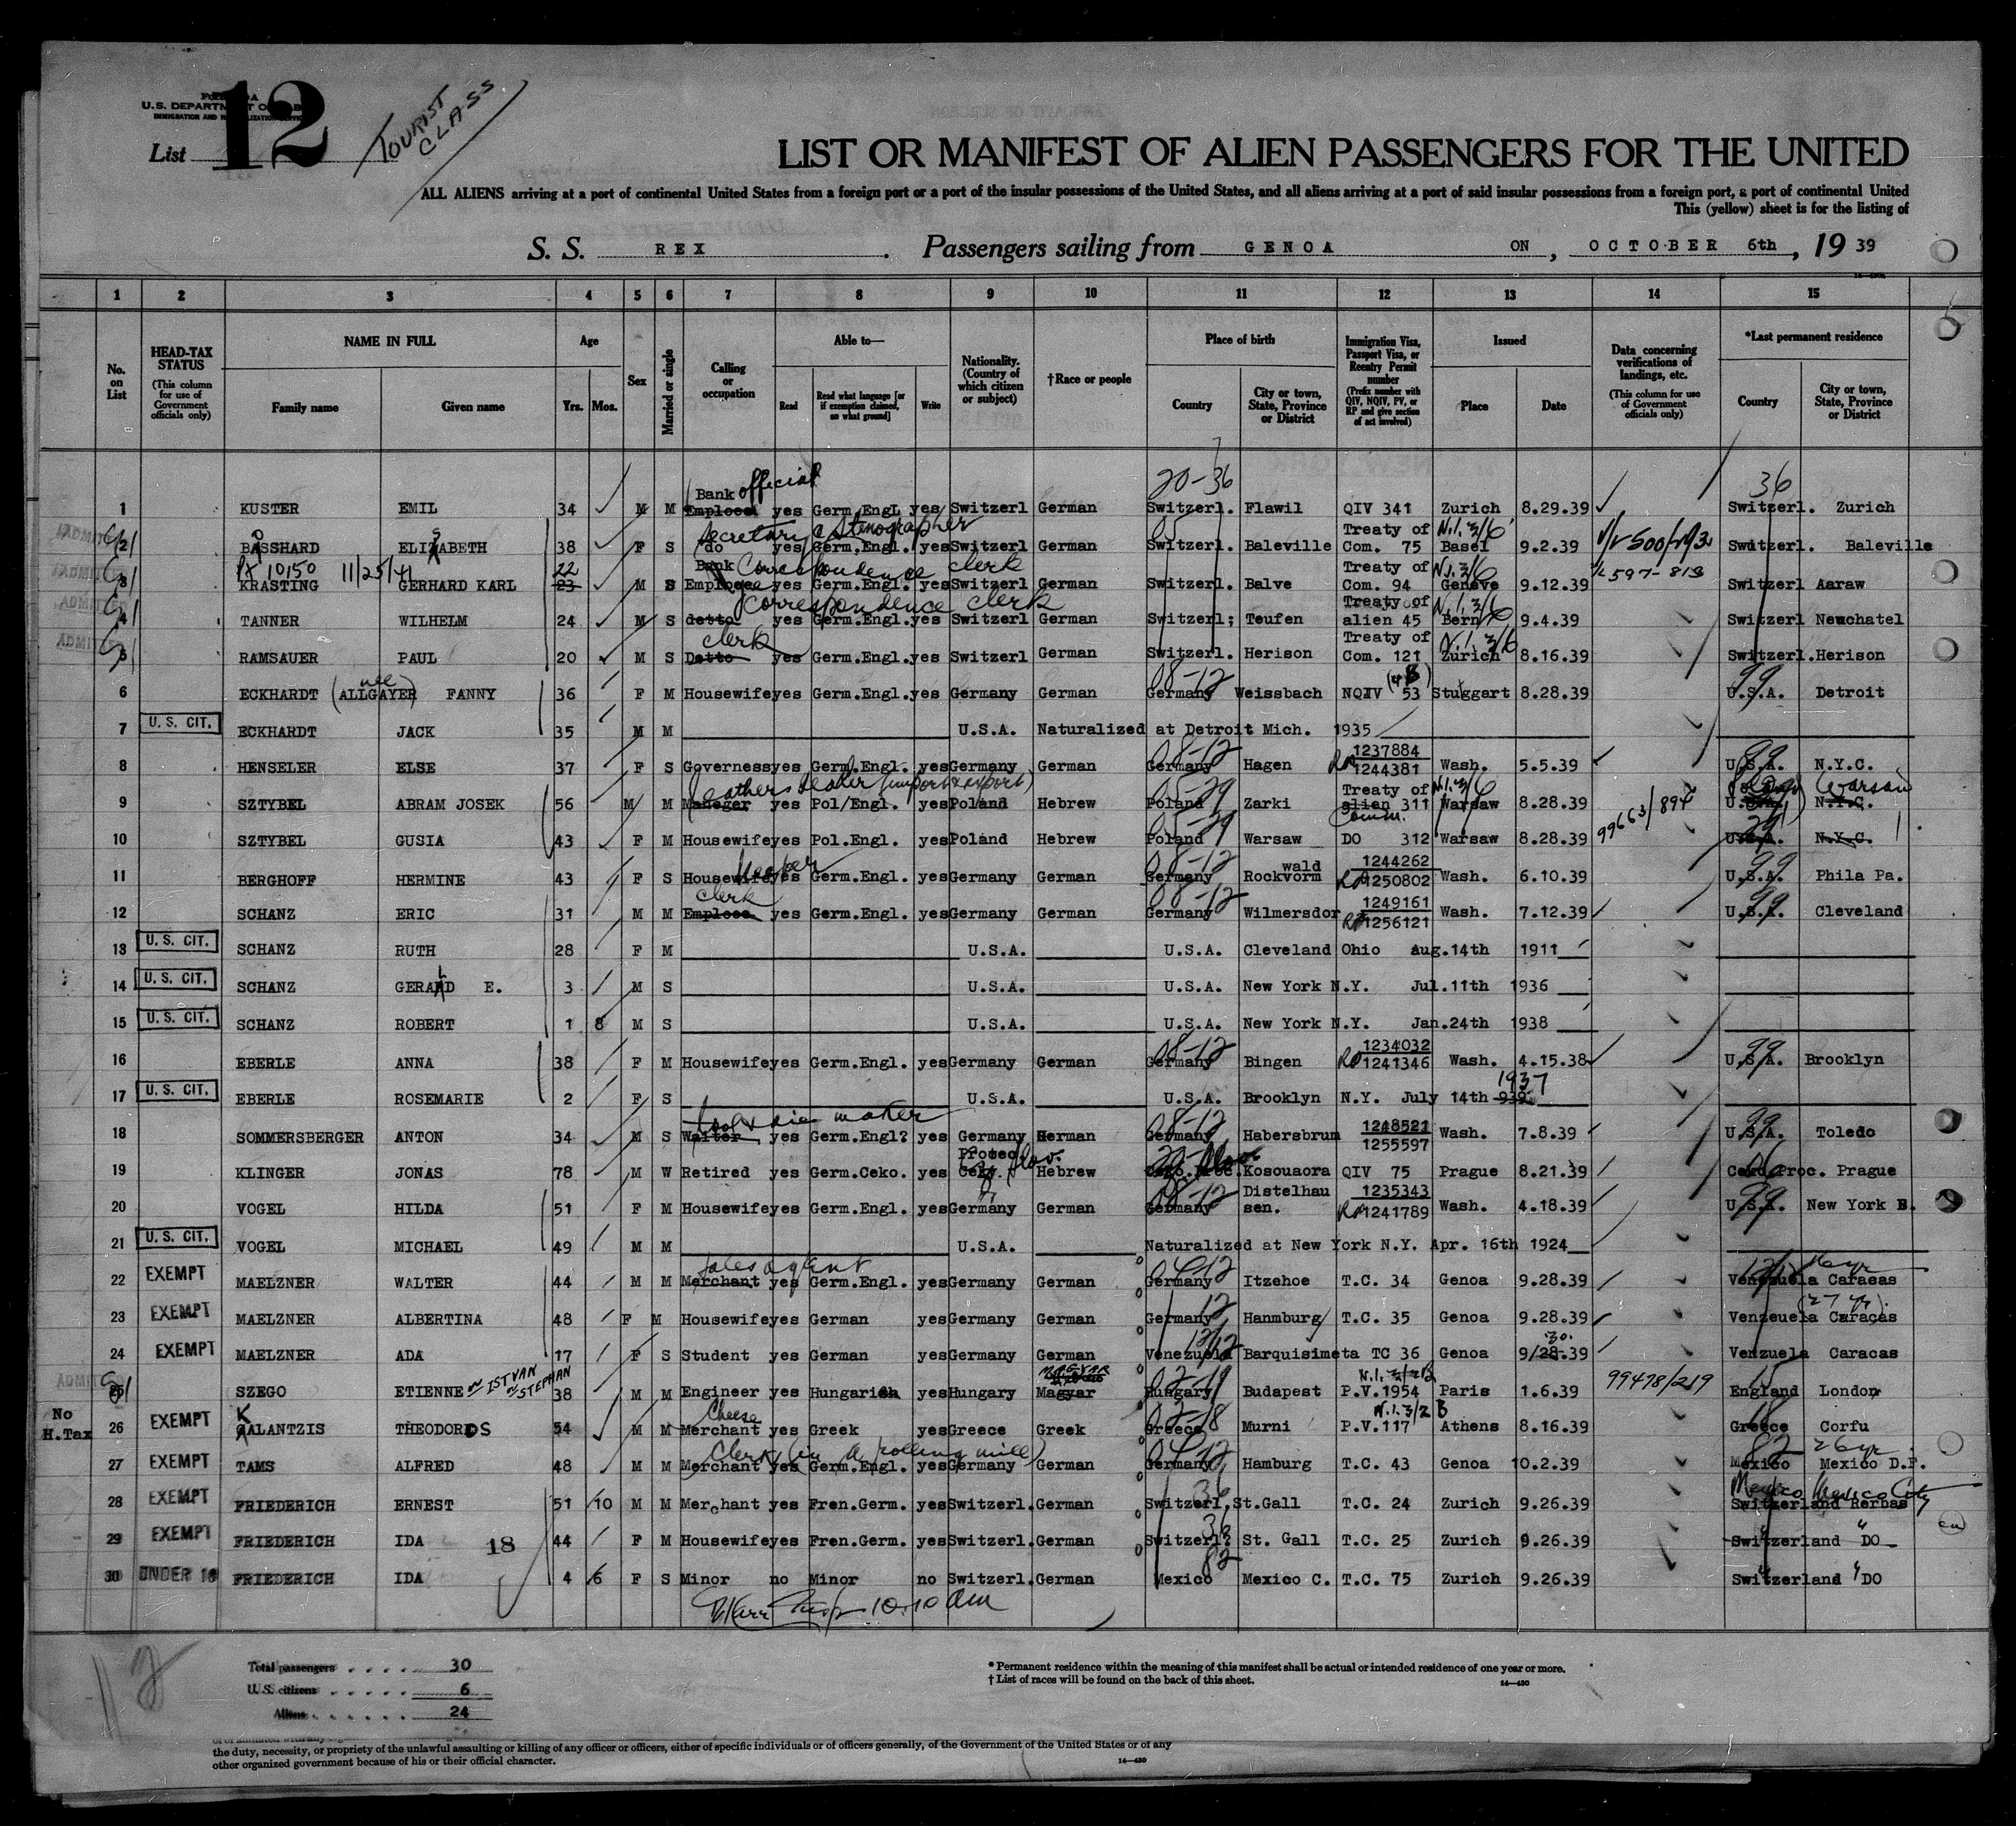 12
U.S. DEPARTMENT OF
List
TOURIST
CLASS
LIST OR MANIFEST OF ALIEN PASSENGERS FOR THE UNITED
ALL ALIENS arriving at a port of continental United States from a foreign port or a port of the insular possessions of the United States, and all aliens arriving at a port of said insular possessions from a foreign port, a port of continental United
This (yellow) sheet is for the listing of
S. S. REX. Passengers sailing from GENOA ON, OCTOBER 6th, 19 39
1 2 3 4 5 6 7 8 9 10 11 12 13 14 15
No. on List
HEAD-TAX STATUS (This column for use of Government officials only)
NAME IN FULL Family name Given name
Age Yrs. Mos.
Sex
Married or single
Calling or occupation
Able to— Read Read what language [or if exemption claimed, on what ground] Write
Nationality. (Country of which citizen or subject)
†Race or people
Place of birth Country City or town, State, Province or District
Immigration Visa, Passport Visa, or Reentry Permit number (Prefix number with QIV, NQIV, PV, or RP and give section of act involved)
Issued Place Date
Data concerning verifications of landings, etc. (This column for use of Government officials only)
*Last permanent residence Country City or town, State, Province or District
official 20-36 36
1 KUSTER EMIL 34 M M Bank Emplooe yes Germ.Engl yes Switzerl German Switzerl. Flawil QIV 341 Zurich 8.29.39 Switzerl. Zurich
Secretary & Stenographer
2 BASSHARD ELIZABETH 38 F S do yes Germ.Engl. yes Switzerl German Switzerl. Baleville Treaty of Com. 75 Basel 9.2.39 Switzerl. Baleville
Px 10150 11/25/41 22 Correspondence clerk
3 KRASTING GERHARD KARL 23 M S Bank Employee yes Germ.Engl. yes Switzerl German Switzerl. Balve Treaty of Com. 94 Geneve 9.12.39 597-813 Switzerl Aaraw
correspondence clerk
4 TANNER WILHELM 24 M S detto yes Germ.Engl. yes Switzerl German Switzerl; Teufen Treaty of alien 45 Bern 9.4.39 Switzerl Neuchatel
clerk
5 RAMSAUER PAUL 20 M S Detto yes Germ.Engl. yes Switzerl German Switzerl. Herison Treaty of Com. 121 Zurich 8.16.39 Switzerl. Herison
6 ECKHARDT (nee ALLGAYER) FANNY 36 F M Housewife yes Germ.Engl. yes Germany German 08-12 Germany Weissbach NQIV 53 Stuggart 8.28.39 99 U.S.A. Detroit
7 U. S. CIT. ECKHARDT JACK 35 M M U.S.A. Naturalized at Detroit Mich. 1935
8 HENSELER ELSE 37 F S Governess yes Germ.Engl. yes Germany German Germany Hagen 1237884 1244381 Wash. 5.5.39 99 U.S.A. N.Y.C.
Leathers dealer (import & export)
9 SZTYBEL ABRAM JOSEK 56 M M Maneger yes Pol/Engl. yes Poland Hebrew Poland Zarki Treaty of alien 311 Comm. Warsaw 8.28.39 Poland Warsaw U.S.A. N.Y.C.
10 SZTYBEL GUSIA 43 F M Housewife yes Pol.Engl. yes Poland Hebrew Poland Warsaw DO 312 Warsaw 8.28.39 99663/894 U.S.A. N.Y.C.
11 BERGHOFF HERMINE 43 F S Housewife keeper yes Germ.Engl. yes Germany German 08-12 Germany Rockvorm wald 1244262 1250802 Wash. 6.10.39 99 U.S.A. Phila Pa.
clerk
12 SCHANZ ERIC 31 M M Emplooe yes Germ.Engl. yes Germany German 08-12 Germany Wilmersdor 1249161 1256121 Wash. 7.12.39 99 U.S.A. Cleveland
13 U. S. CIT. SCHANZ RUTH 28 F M U.S.A. U.S.A. Cleveland Ohio Aug.14th 1911
14 U. S. CIT. SCHANZ GERALD E. 3 M S U.S.A. U.S.A. New York N.Y. Jul.11th 1936
15 U. S. CIT. SCHANZ ROBERT 1 8 M S U.S.A. U.S.A. New York N.Y. Jan.24th 1938
16 EBERLE ANNA 38 F M Housewife yes Germ.Engl. yes Germany German 08-12 Germany Bingen 1234032 1241346 Wash. 4.15.38 99 U.S.A. Brooklyn
17 U. S. CIT. EBERLE ROSEMARIE 2 F S U.S.A. U.S.A. Brooklyn N.Y. July 14th 939 1937
tool & die maker
18 SOMMERSBERGER ANTON 34 M S Waiter yes Germ.Engl? yes Germany German 08-12 Germany Habersbrun 1248521 1255597 Wash. 7.8.39 99 U.S.A. Toledo
19 KLINGER JONAS 78 M W Retired yes Germ.Ceko. yes Protec. Ceko. Slov. Hebrew Ceko.Proc. Kosouaora QIV 75 Prague 8.21.39 Ceko Proc. Prague
20 VOGEL HILDA 51 F M Housewife yes Germ.Engl. yes Germany German 08-12 Germany Distelhau sen. 1235343 1241789 Wash. 4.18.39 99 U.S.A. New York
21 U. S. CIT. VOGEL MICHAEL 49 M M U.S.A. Naturalized at New York N.Y. Apr. 16th 1924
sales agent
22 EXEMPT MAELZNER WALTER 44 M M Merchant yes Germ.Engl. yes Germany German Germany Itzehoe T.C. 34 Genoa 9.28.39 Venezuela Caracas
23 EXEMPT MAELZNER ALBERTINA 48 F M Housewife yes German yes Germany German Germany Hanmburg T.C. 35 Genoa 9.28.39 (27 yr). Venzeuela Caracas
24 EXEMPT MAELZNER ADA 17 F S Student yes German yes Germany German Venezuela Barquisimeta TC 36 Genoa 9/28.39 30. Venzuela Caracas
25 SZEGO ETIENNE ISTVAN STEPHAN 38 M M Engineer yes Hungarian yes Hungary Magyar Hungary Budapest P.V.1954 Paris 1.6.39 99478/219 England London
No H.Tax 26 EXEMPT KALANTZIS THEODOROS 54 M M Cheese Merchant yes Greek yes Greece Greek Greece Murni P.V.117 Athens 8.16.39 Greece Corfu
Clerk (in a rolling mill)
27 EXEMPT TAMS ALFRED 48 M M Merchant yes Germ.Engl. yes Germany German Germany Hamburg T.C. 43 Genoa 10.2.39 82 26 yr. Mexico Mexico D.F.
28 EXEMPT FRIEDERICH ERNEST 51 10 M M Merchant yes Fren.Germ. yes Switzerl. German 36 Switzerl, St.Gall T.C. 24 Zurich 9.26.39 Mexico Mexico City Switzerland Rerbas
29 EXEMPT FRIEDERICH IDA 18 44 F M Housewife yes Fren.Germ. yes Switzerl. German 36 Switzerl? St. Gall T.C. 25 Zurich 9.26.39 Switzerland " DO
30 UNDER 16 FRIEDERICH IDA 4 6 F S Minor no Minor no Switzerl. German 82 Mexico Mexico C. T.C. 75 Zurich 9.26.39 Switzerland " DO
10.10 am
Total passengers 30
U.S. citizens 6
Aliens 24
* Permanent residence within the meaning of this manifest shall be actual or intended residence of one year or more.
† List of races will be found on the back of this sheet.
14—430
the duty, necessity, or propriety of the unlawful assaulting or killing of any officer or officers, either of specific individuals or of officers generally, of the Government of the United States or of any
other organized government because of his or their official character.
14—430